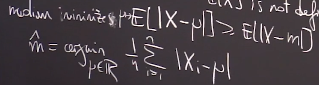 E[X] is not def
median minimizes μ↦ E[|X-μ|] ≥ E[|X-m|]
m̂ = argmin_{μ∈ℝ} 1/n ∑_{i=1}^{n} |X_i-μ|